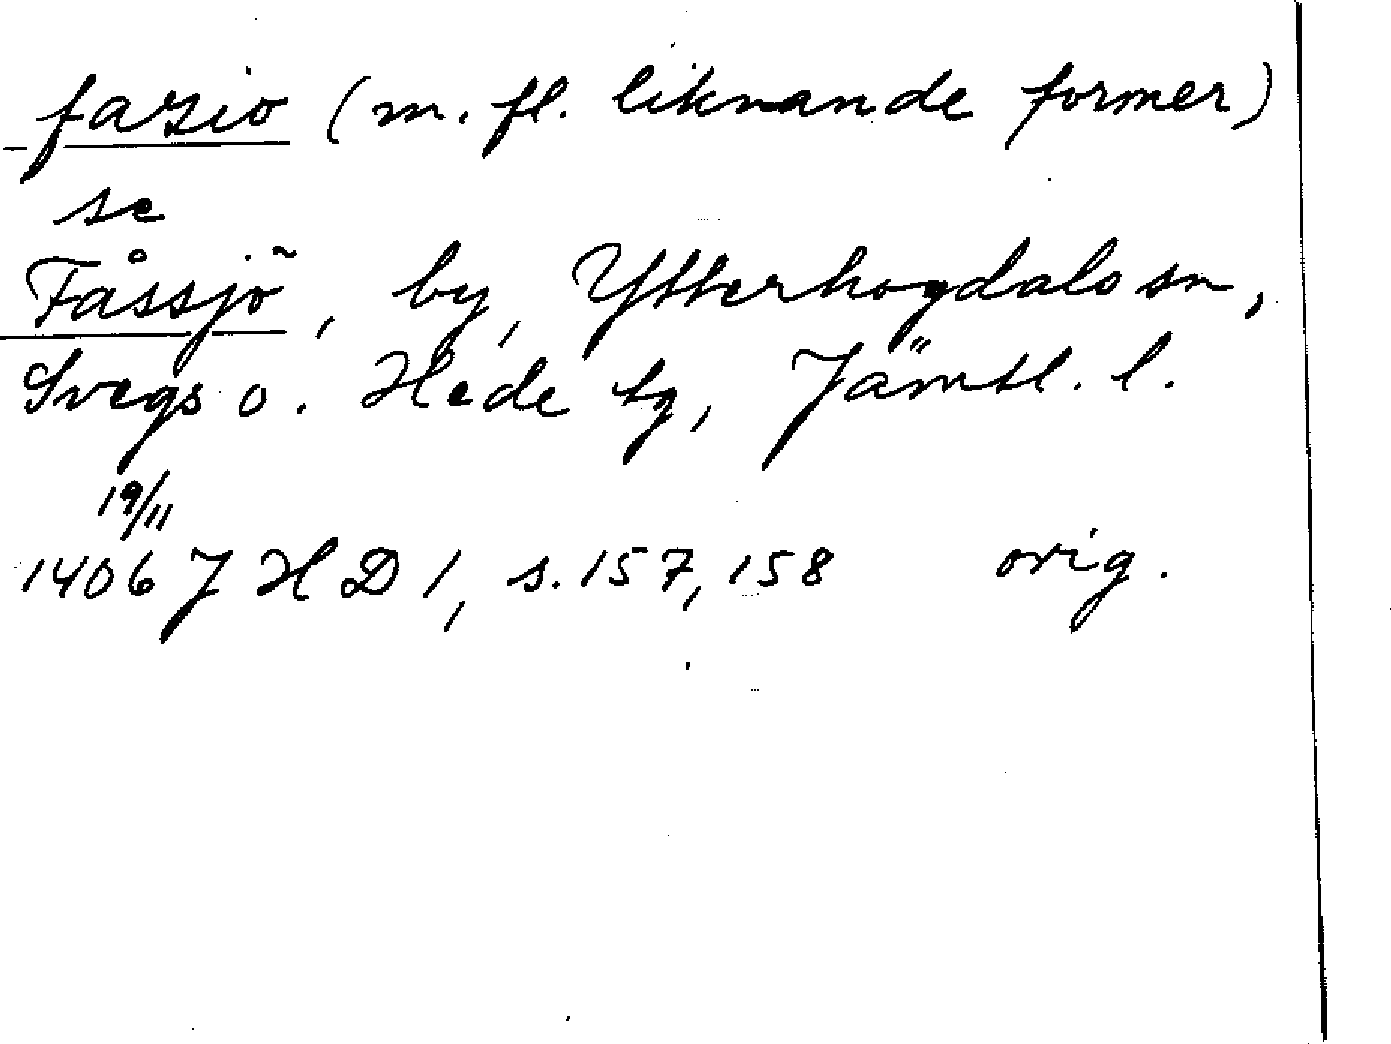 fazio (m. fl. liknande former)
se
Fåssjö, by, Ytterhogdals sn,
Svegs o. Hede tg, Jämtl. l.
19/11
1406 J H D 1, s. 157, 158 orig.